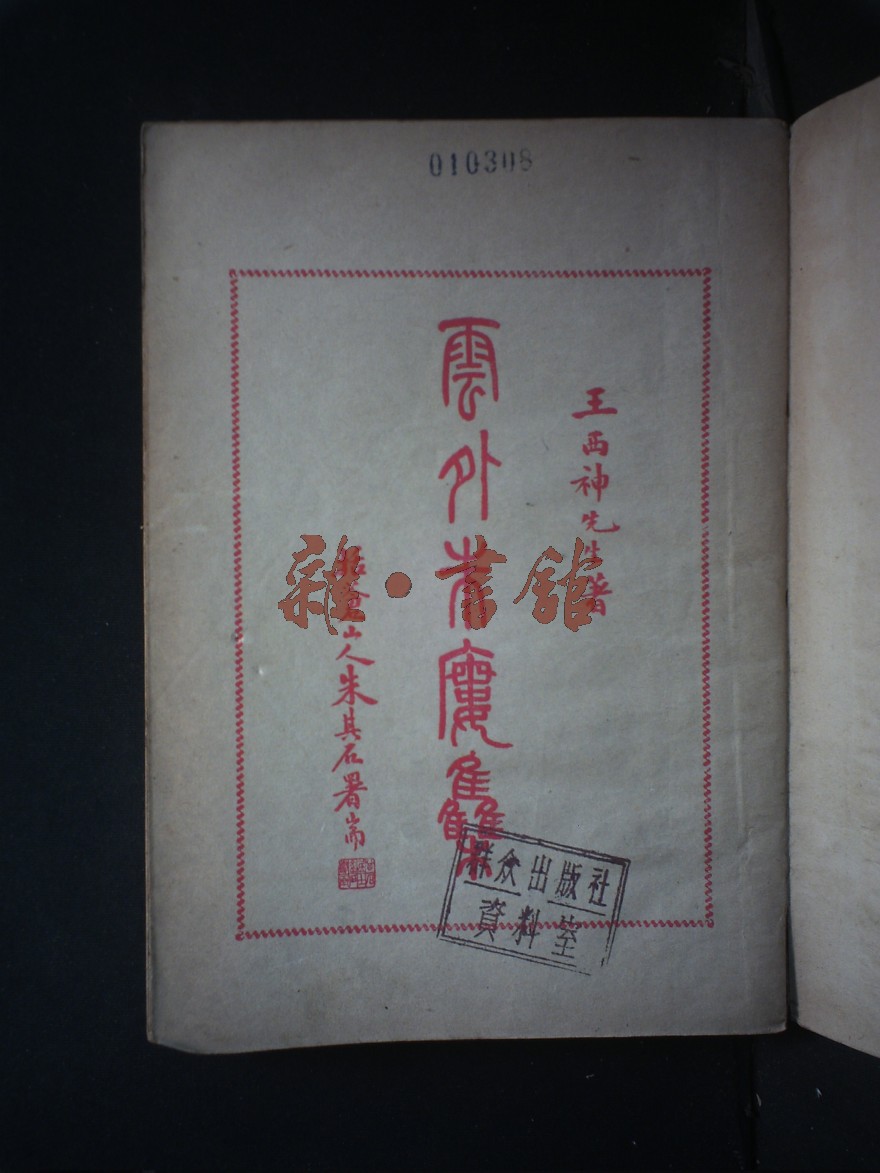 010308
王西神先生著
雲外朱樓集
山人朱其石署耑
雜·書館
群众出版社
資料室